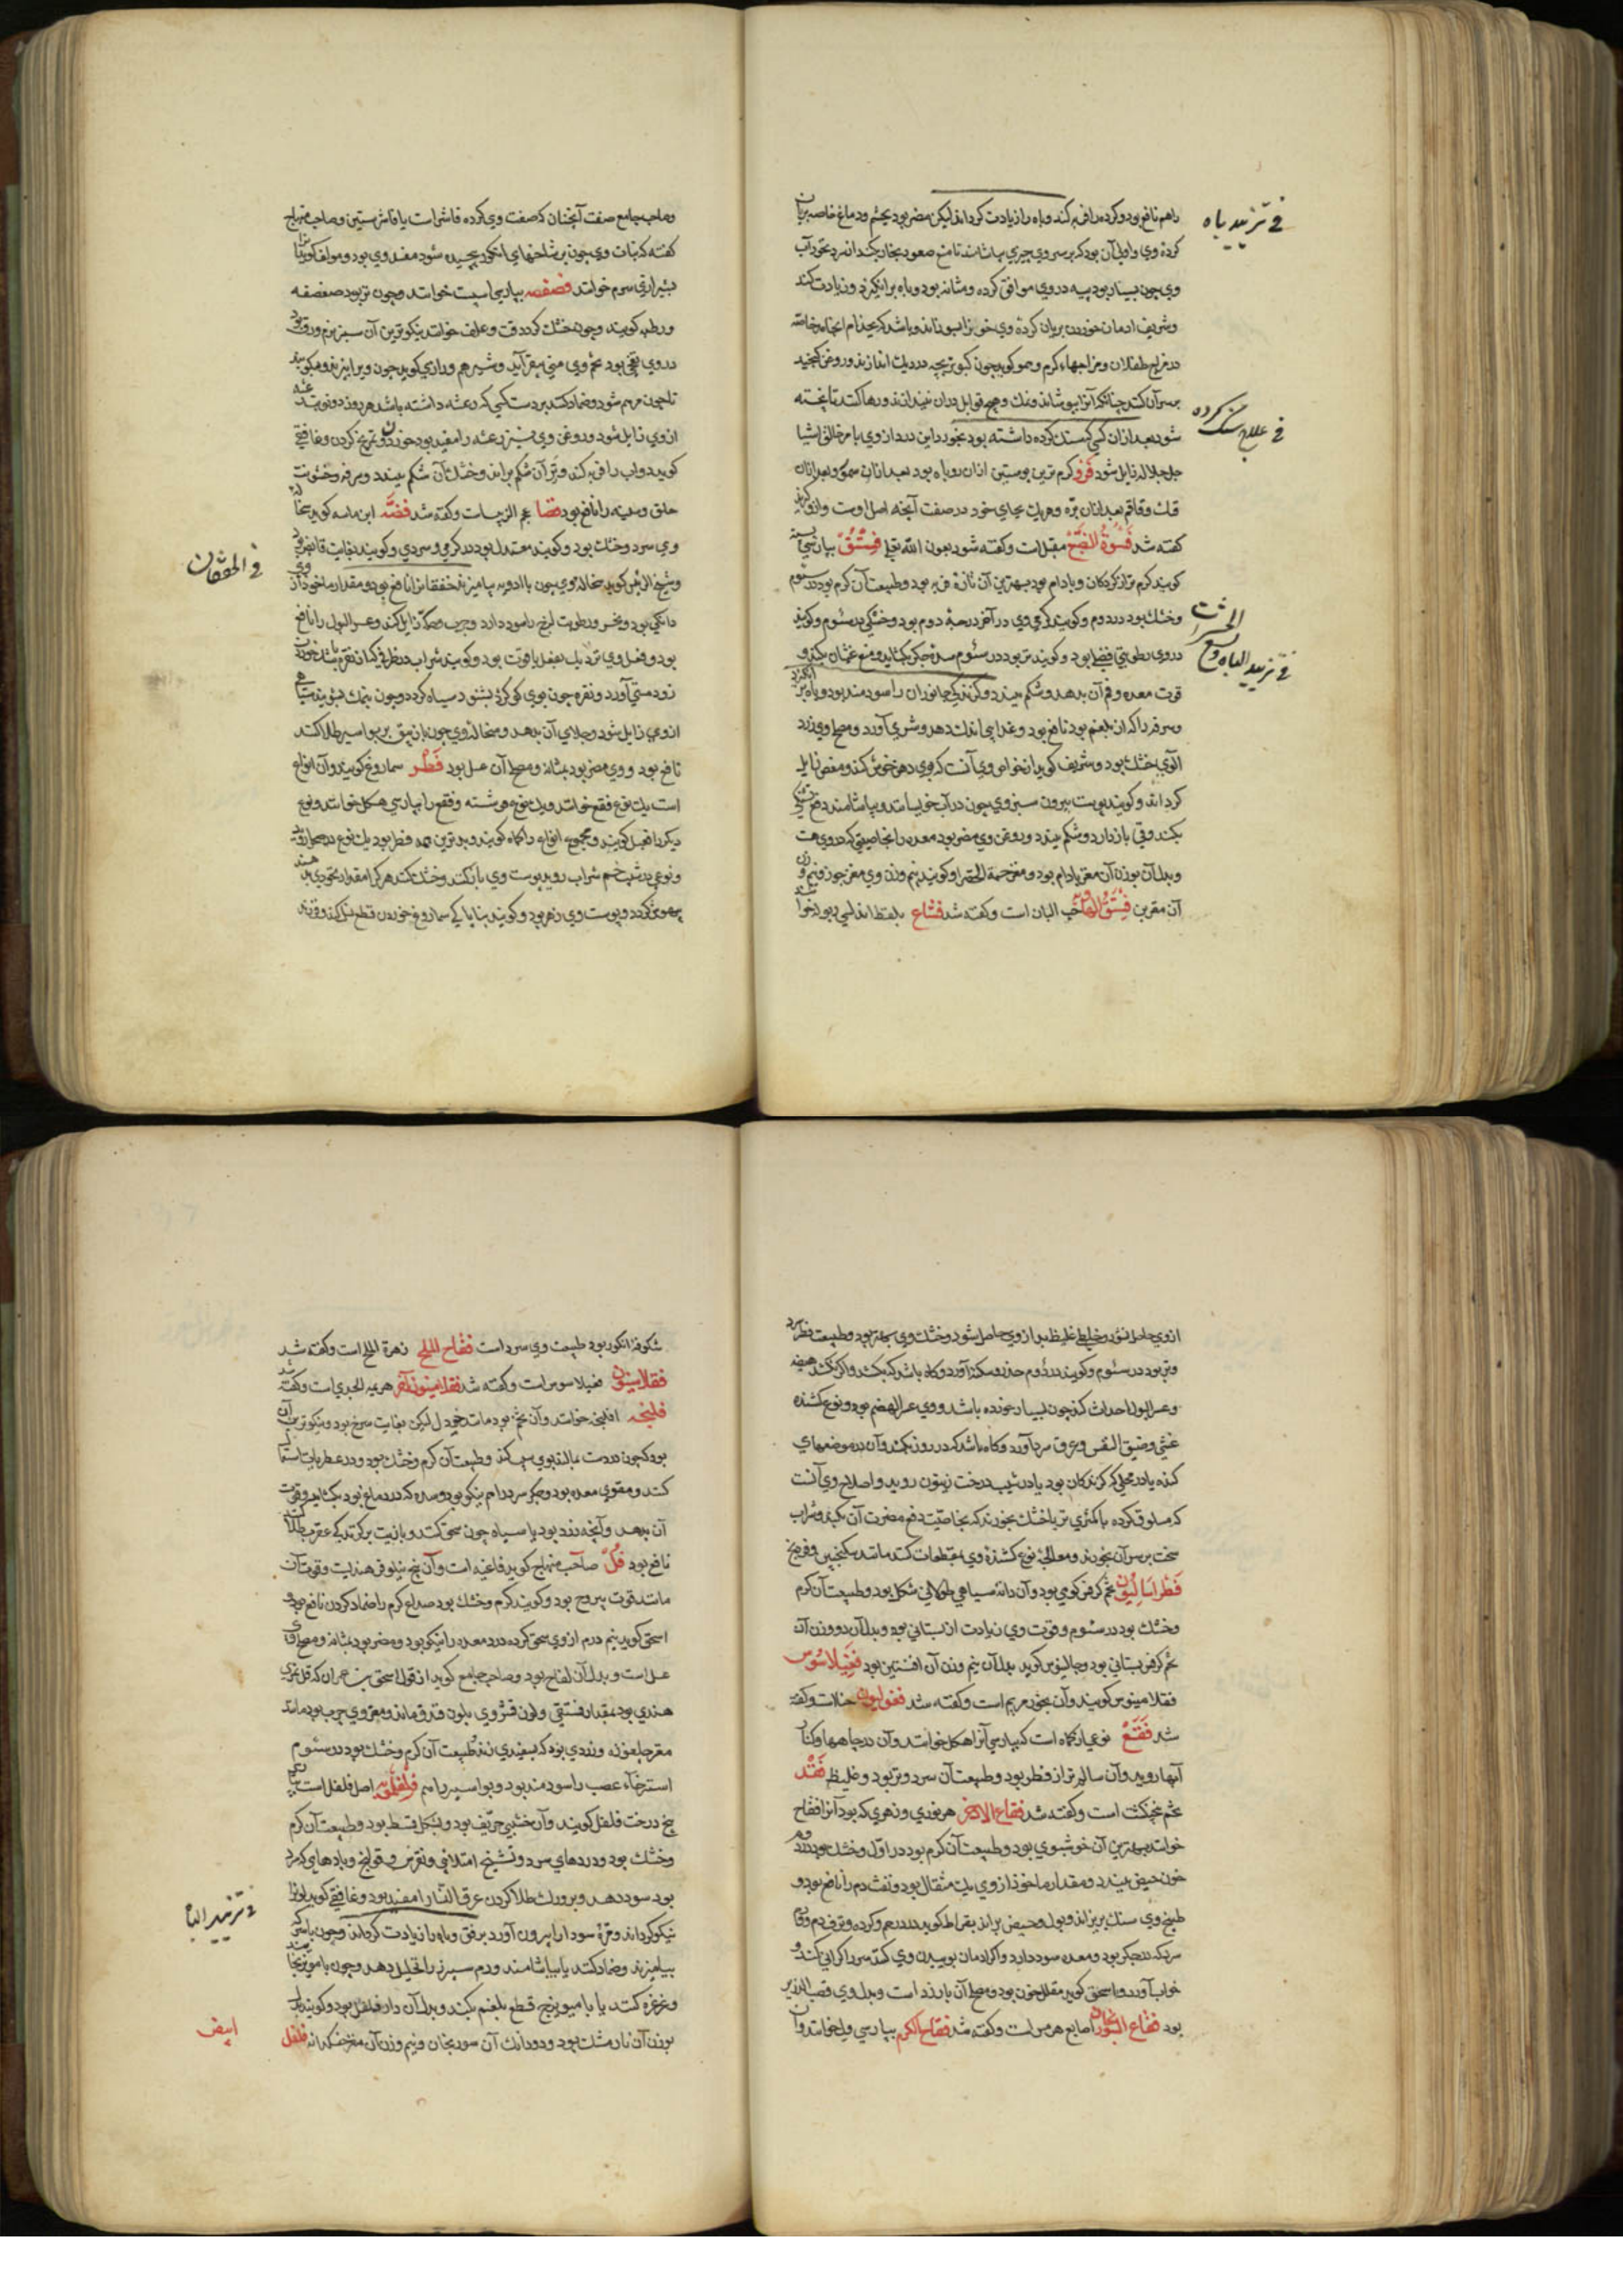 راهم نافع بود و کرده را فربه کند و باه را زیادت کرداند لیکن مضر بود بچشم و دماغ خاصه بریان
فی تزیید باه
کرده وی و اولی آن بود که بر سر وی چیزی بیاشامند تا منع صعود بخار بکند
وی چون بسیار بود پیه در وی موافق کرده و مثانه بود و باه برانکیزد و زیادت کند
و شریف ادمان خوردن بریان کرده وی خون را بسوزاند و باشد که بجذام انجامد خاصه
در مزاج طفلان و مزاجهاء کرم و هم کوید چون کبوتر بچه در دیک اندازند و روغن کنجد
بر سر آن کنند چنانکه آنرا بپوشاند و نمک و هیچ توابل در آن نیندازند و رها کنند تا پخته
فی علاج سنک کرده
شود بعد از آن کسی که سنک کرده داشته بود بخورد این درد از وی بامر خالق اشیا
جل جلاله زایل شود فرو کرم ترین پوستین
کفته شد فسوة الضبع مقل است و کفته شود بعون الله تعالی فستق بپارسی پسته
کویند کرم تر از کردکان و بادام بود بهترین آن تازه فربه بود و طبیعت آن کرم بود در سئوم
الحشرات
و خشک بود در دوم و کویند کرمی وی در آخر درجه دوم بود و خشکی در سئوم و کویند
در وی رطوبتی فضلی بود و کویند تر بود در سئوم سده جکر بکشاید و منع غثیان بکند و
فی تزیید الباه و لسع
قوت معده و فم آن بدهد و شکم ببندد و کزندکی جانوران را سودمند بود و باه برانکیزد
و سرفه را که از بلغم بود نافع بود و غذایی اندک دهد و شری آورد و مصلح وی زرد
آلوی خشک بود و شریف کوید از خواص وی آنست که بوی دهن خوش کند و مغص زایل
کرداند و کویند پوست بیرون سبز وی چون در آب خیسانند و بیاشامند دفع تشنکی
بکند و قی بازدارد و شکم ببندد و روغن وی مضر بود معده را بخاصیتی که در وی هست
و بدل آن بوزن آن مغز بادام بود و مغز حبة الخضرا و کویند نیم وزن وی مغز جوز و نیم وزن
آن مقربن فستق الهاء حب البان است و کفته شد فشاع بلفظ اندلسی ربولا خوانند
و صاحب جامع صفت آنچنان که صفت وی کرده فاشراست یا فاشرستین و صاحب منهاج
کفته که نبات وی چون بر شاخهای انکور پیچیده شود مفسد وی بود و مولف کوید آنرا
بشیرازی سرم خوانند فصفصه بپارسی اسپست خوانند و چون تر بود صفصفه
و رطبه کویند و چون خشک کردد قت و علف خوانند نیکوترین آن سبز نرم ورق بود
در وی نفخی بود تخم وی منی بیفزاید و شیر هم و رازی کوید چون ویرا بپزند و بکوبند
تا چون مرهم شود و ضماد کنند بر دست کسی که رعشه داشته باشد هر روز دو نوبت رعشه
از وی زایل شود و روغن وی نیز رعشه را مفید بود خوردن و تمریخ کردن و غافقی
کوید دواب را فربه کند و تر آن شکم براند و خشک آن شکم ببندد و سرفه و خشونت
حلق و سینه را نافع بود فضا عجم الزبیب است و کفته شد فضه ابن ماسه کوید سحاله
وی سرد و خشک بود و کویند معتدل بود در کرمی و سردی و کویند بغایت قابض بود
فی الخفقان
و شیخ الرئیس کوید سحاله وی چون با ادویه بیامیزند خفقانرا نافع بود و مقدار ماخوذ از وی
دانکی بود و بخر و رطوبت لزج را سود دارد و جرب و حکه زایل کند و عسر البول را نافع
بود و فعل وی نزدیک بفعل یاقوت بود و کویند شراب در ظرفی که از نقره باشد خوردن
زود مستی آورد و نقره چون بوی کوکرد بشنود سیاه کردد و چون بنمک بشویند سیاهی
از وی زایل شود و جلای آن بدهد و سحاله وی چون با زیبق بر بواسیر طلا کنند
نافع بود و وی مضر بود بمثانه و مصلح آن عسل بود فطر سماروغ کویند و آن انواع
است یک نوع فقع خوانند و یک نوع غوشنه و فقع را بپارسی هکل خوانند و نوع
دیکر را قعبل کویند و مجموع انواع را کماه کویند و بدترین همه فطر بود
و نوعی در شیب خم شراب روید پوست وی باز کنند و خشک کنند هر کرا مقدار نخودی بدهند
بیهوش کردد و پوست وی زهر بود و کویند بنایاکی سماروغ خوردن قطع نسل کند
از وی حاصل نشود و خلطی غلیظ بد از وی حاصل شود و خشک وی بهتر بود و طبیعت فطر سرد
و تر بود در سئوم و کویند در دوم خدر و سکته آورد و کاه باشد که بکشد و اکر نکشد هیضه
و عسر البول احداث کند چون بسیار خورده باشد و وی عسر الهضم بود و نوع کشنده
غشی و ضیق النفس و عرق سرد آورد و کاه باشد که در روز بکشد و آن در موضعهای
کنده یا در محلی که کزندکان بود یا در شیب درخت زیتون روید و اصلاح وی آنست
که مسلوق کرده با کمثری تر یا خشک بخورند که بخاصیت دفع مضرت آن بکند و شراب
سخت بر سر آن بخورند و معالجه نوع کشنده وی بمقطعات کنند مانند سکنجبین و فودنج
فطراسالیون تخم کرفس کوهی بود و آن دانه سیاهی طولانی شکل بود و طبیعت آن کرم
و خشک بود در سئوم و قوت وی زیادت از بستانی بود و بدل آن دو وزن آن
تخم کرفس بستانی بود و جالینوس کوید بدل آن نیم وزن آن افسنتین بود فغیلاسوس
فقلامینوس کویند و آن بخور مریم است و کفته شد فغولیون حنا است و کفته
شد فقع نوعی از کماه است که بپارسی آنرا هکل خوانند و آن در جاهها و کنار
آبها روید و آن سالم تر از فطر بود و طبیعت آن سرد و تر بود و غلیظ فقد
تخم پنجنکشت است و کفته شد فقاح الاذخر هر نوری و زهری که بود آنرا فقاح
خوانند بهترین آن خوشبوی بود و طبیعت آن کرم بود در اول و خشک بود در دوم
خون حیض ببندد و مقدار ماخوذ از وی یک مثقال بود و نفث دم را نافع بود و
طبیخ وی سنک بریزاند و بول و حیض براند بقراط کوید درد رحم و کرده و نزف دم
که در جکر بود و معده سود دارد و اکر ادمان بوییدن وی کنند سر را کرانی کند و
خواب آورد و اسحق کوید مقلل خون بود و مصلح آن بارزد است و بدل وی قصب الذریره
بود فقاح السورنجان اصابع هرمس است و کفته شد فقاح الکرم بپارسی خوانند و آن
شکوفه انکور بود طبیعت وی سرد است فقاح الملح زهرة الملح است و کفته شد
فقلامینوس فغیلاسوس است و کفته شد فقلامینون آخر است و کفته شد
فلنجه افلنجه خوانند و آن تخمی بود مانند خردل لیکن بغایت سرخ بود و نیکوترین آن
بود که چون در دست بمالند بوی سیب کند و طبیعت آن کرم و خشک بود و در عطریات استعمال
کنند و مقوی معده بود و جکر سرد را هم نیکو بود و سده که در دماغ بود بکشاید و قوت
آن بدهد و آنچه زرد بود یا سیاه چون سحق کنند و بازیت بر کزیدکی عقرب طلا کنند
نافع بود فل صاحب منهاج کوید فاغیه است و آن بیخ نیلوفر هندیست و قوت آن
مانند قوت یبروح بود و کویند کرم و خشک بود صداع کرم را ضماد کردن نافع بود
اسحق کوید نیم درم از وی سحق کرده درد معده را نیکو بود و مضر بود بمثانه و مصلح وی
عسل است و بدل آن لفاح بود و صاحب جامع کوید از قول اسحق بن عمران که فل ثمری
هندی بود بمقدار فستقی و لون قشر وی بلون فندق ماند و مغز وی چرب بود مانند
مغز جلغوزه و زردی بود که بسفیدی زند طبیعت آن کرم و خشک بود در سئوم
استرخاء عصب را سودمند بود و بواسیر را هم فلفلمویه اصل فلفل است
بیخ درخت فلفل کویند و آن خشبی حریف بود و بشکل قسط بود و طبیعت آن کرم
و خشک بود و دردهای سرد و تشنج امتلائی و نقرس و قولنج و بادهای که سرد
فی تزیید الباه
بود سود دهد و بر ورک طلا کردن عرق النسا را مفید بود و غافقی کوید آواز را
نیکو کرداند و مره سودا را بیرون آورد برفق و باه را زیادت کرداند و چون با سرکه
بیامیزند و ضماد کنند یا بیاشامند ورم سپرز را تحلیل دهد و چون با مویز بخایند
و غرغره کنند یا با میویزج قطع بلغم بکند و بدل آن دار فلفل بود و کویند بدل
بوزن آن نارمشک بود و دو دانک آن سورنجان و نیم وزن آن مغز خسکدانه فلفل
ابیض